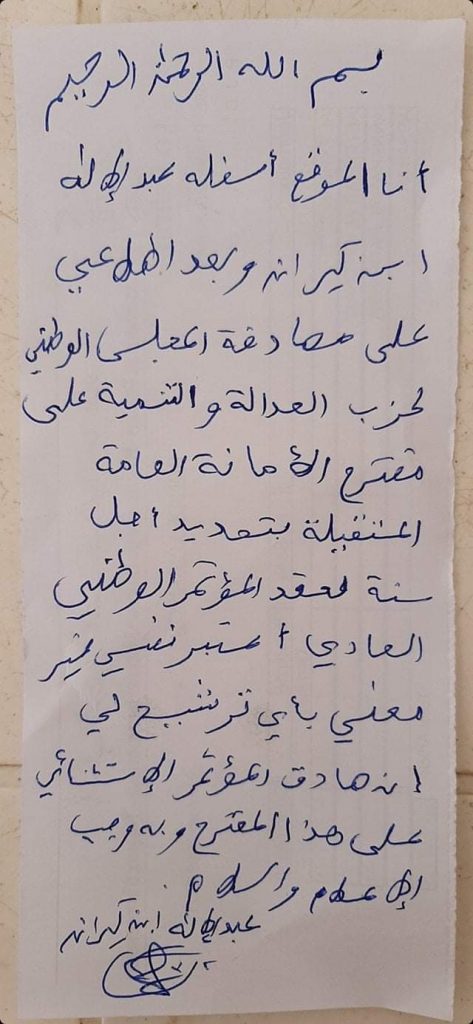 بسم الله الرحمن الرحيم
أنا الموقع أسفله عبد الإلاه
ابن كيران وبعد اطلاعي
على مصادقة المجلس الوطني
لحزب العدالة والتنمية على
مقترح الأمانة العامة
المستقيلة بتحديد اجل
سنة لعقد المؤتمر الوطني
العادي أعتبر نفسي غير
معني بأي ترشيح لي
إن صادق المؤتمر الإستثنائي
على هذا المقترح وبه وجب
الإعلام والسلام.
عبد الإلاه ابن كيران